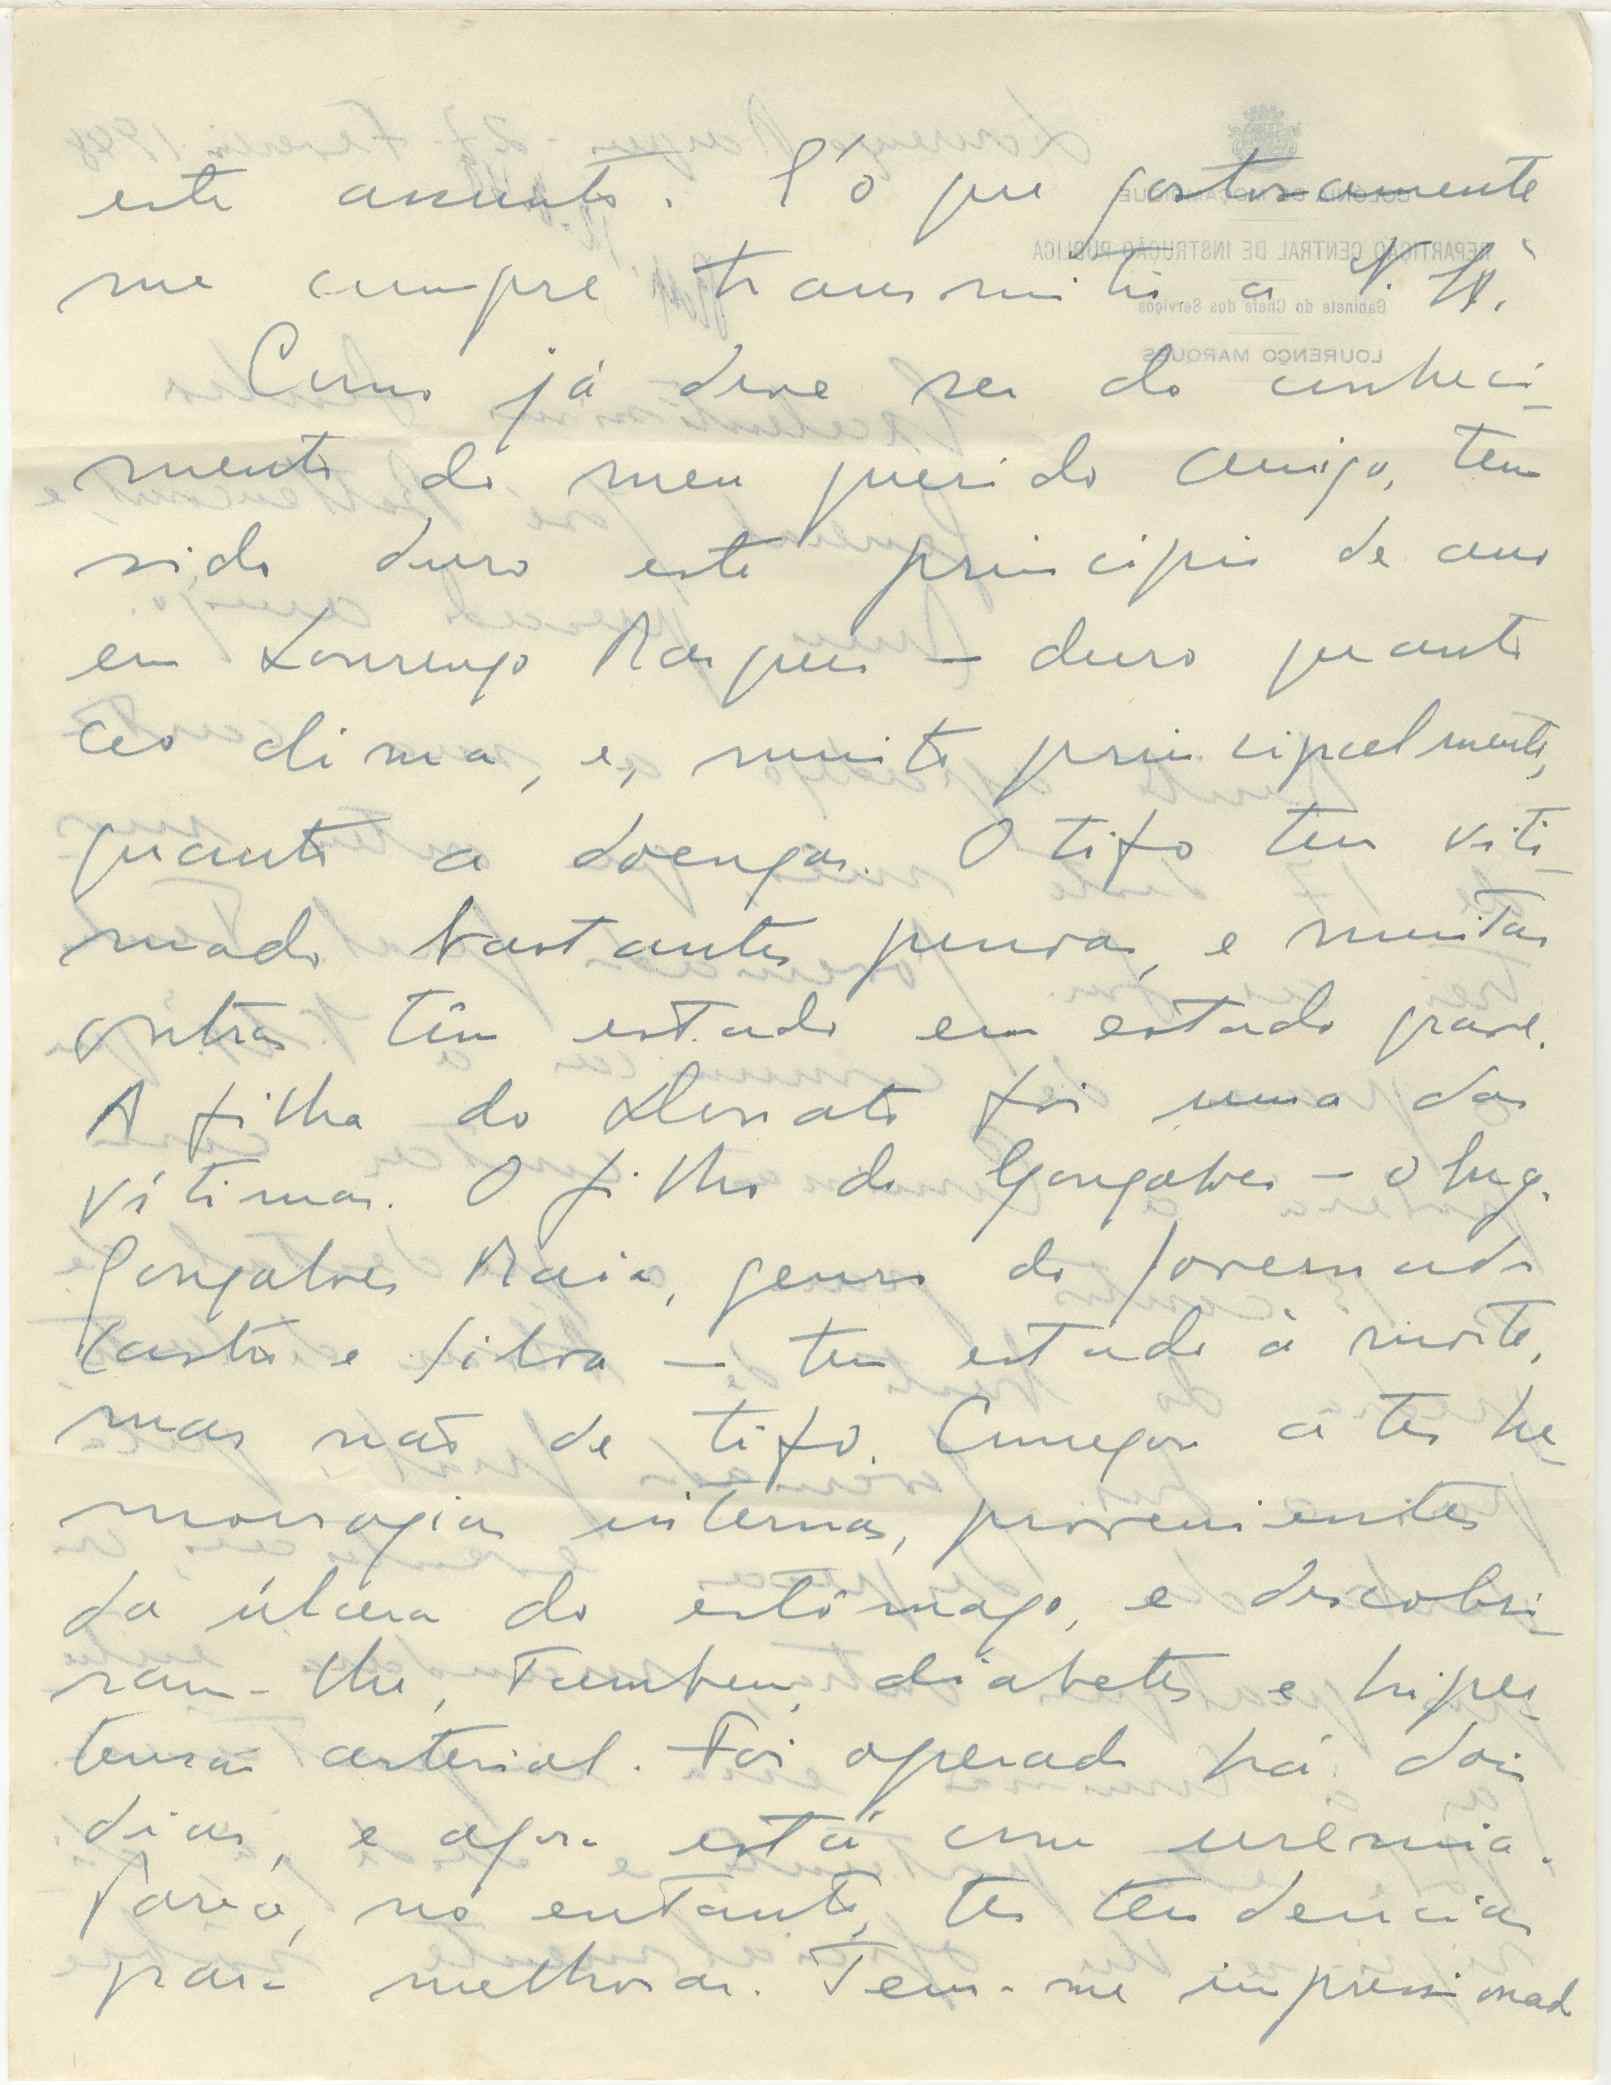 este assunto. É o que gostosamente
me cumpre transmitir a V. Exª.
Como já deve ser do conheci-
mento do meu querido amigo, tem
sido duro este principio de ano
em Lourenço Marques — duro quanto
ao clima, e, muito principalmente,
quanto a doenças. O tifo tem viti-
mado bastantes pessoas, e muitas
outras têm estado em estado grave.
A filha do Donato foi uma das
vítimas. O filho do Gonçalves — o Eng.
Gonçalves Maia, genro do Governador
Castro e Silva — tem estado à morte,
mas não de tifo. Começou a ter he-
morragias internas, provenientes
da úlcera do estômago, e descobri-
ram-lhe, tambem, diabetes e hiper-
tensão arterial. Foi operado há dois
dias, e agora está com urêmia.
Parece, no entanto, ter tendencias
para melhorar. Tem-me impressionado
COLÓNIA DE MOÇAMBIQUE
REPARTIÇÃO CENTRAL DE INSTRUÇÃO PÚBLICA
Gabinete do Chefe dos Serviços
LOURENÇO MARQUES